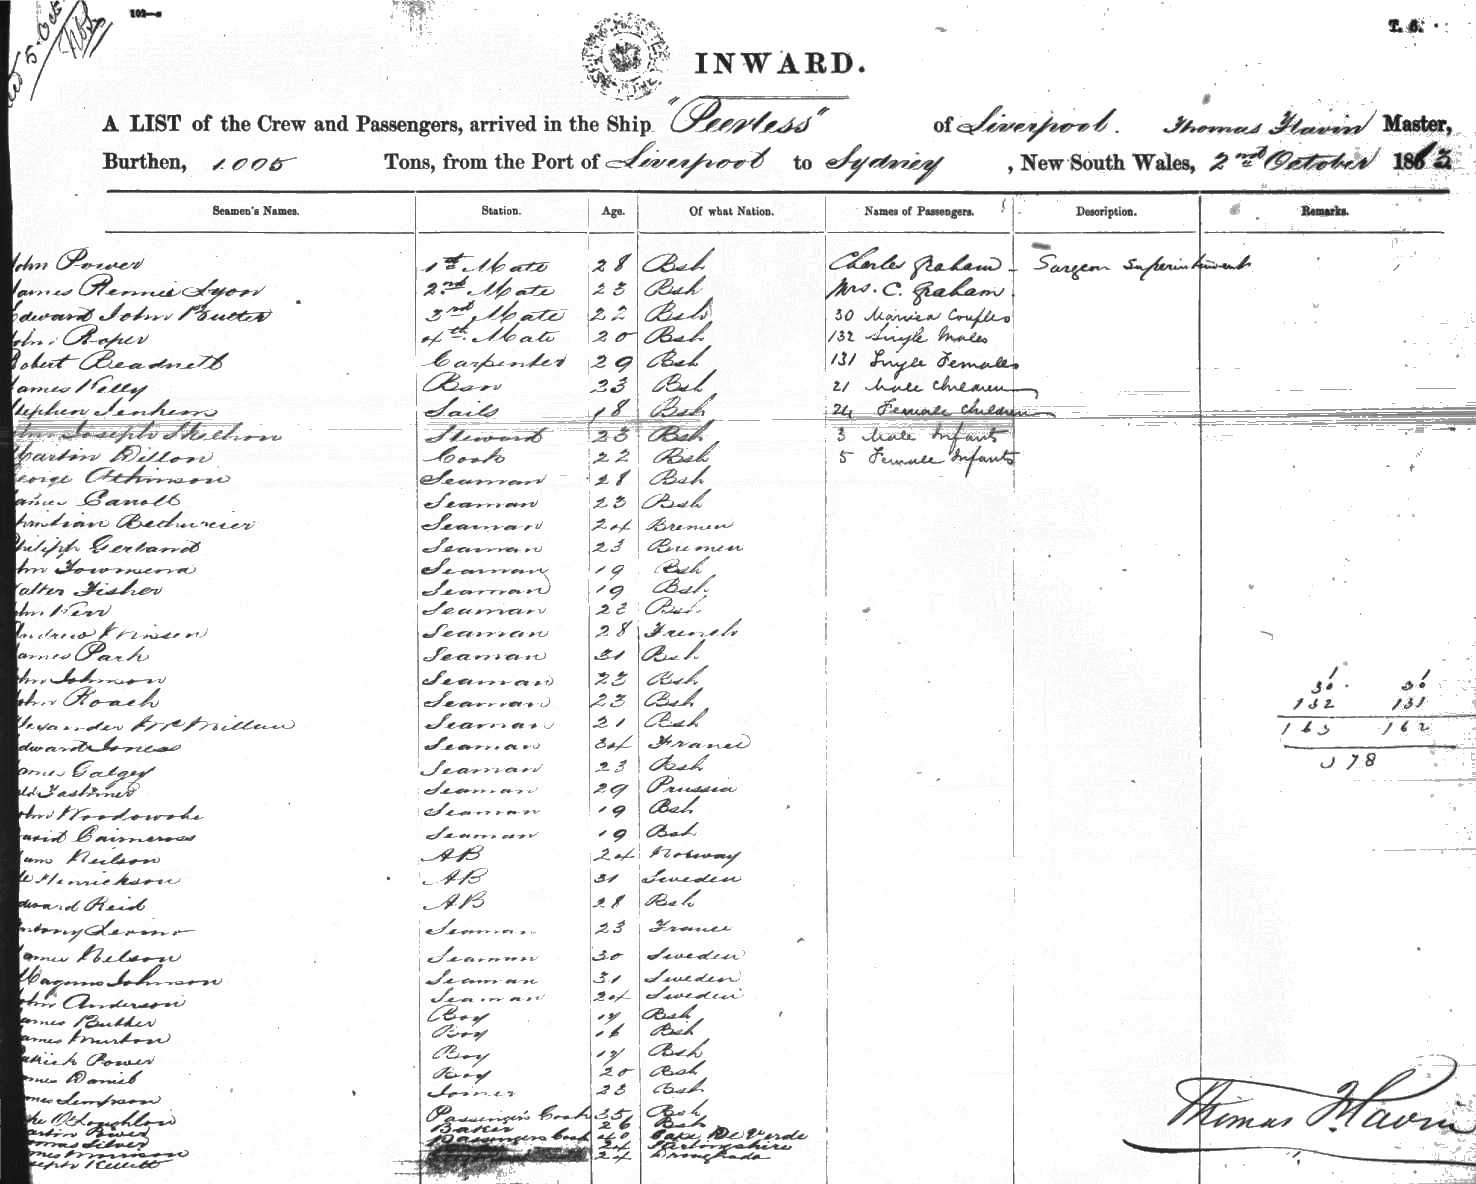 102—a
T. 6.
5 Oct
INWARD.
A LIST of the Crew and Passengers, arrived in the Ship "Peerless" of Liverpool. Thomas Flavin Master,
Burthen, 1005 Tons, from the Port of Liverpool to Sydney, New South Wales, 2nd October 1863
Seamen's Names. Station. Age. Of what Nation. Names of Passengers. Description. Remarks.
John Power 1st Mate 28 Bsh Charles Graham - Surgeon Superintendent
James Rennie Lyon 2nd Mate 23 Bsh Mrs. C. Graham.
Edward John Butler 3rd Mate 22 Bsh 30 Married Couples
John Roper 4th Mate 20 Bsh 132 Single Males
Robert Beadnell Carpenter 29 Bsh 131 Single Females
James Kelly Bsn 23 Bsh 21 Male Children
Stephen Jenkins Sails 18 Bsh 24 Female Children
John Joseph Skelton Steward 23 Bsh 3 Male Infants
Martin Dillon Cook 22 Bsh 5 Female Infants
George Atkinson Seaman 28 Bsh
James Carroll Seaman 23 Bsh
Christian Seaman 24 Bremen
Philipp Gerland Seaman 23 Bremen
John Seaman 19 Bsh
Walter Fisher Seaman 19 Bsh
John Kerr Seaman 22 Bsh
Andrew Seaman 28 French
James Park Seaman 21 Bsh
John Johnson Seaman 23 Bsh 1 1
30. 30
John Roach Seaman 23 Bsh 132 131
Alexander McMillan Seaman 21 Bsh 163 162
Edward Jones Seaman 34 France
James Galgey Seaman 23 Bsh 378
Seaman 29 Prussia
John Seaman 19 Bsh
David Cairncross Seaman 19 Bsh
Neilson AB 24 Norway
Henrickson AB 31 Sweden
Edward Reid AB 28 Bsh
Antony Seaman 23 France
James Nelson Seaman 30 Sweden
Magnus Johnson Seaman 31 Sweden
John Anderson Seaman 24 Sweden
James Butler Boy 17 Bsh
James Murton Boy 16 Bsh
Patrick Power Boy 17 Bsh
James Daniel Boy 20 Bsh
James Simpson Joiner 23 Bsh
O'Loughlon Passengers Cook 35 Bsh
Martin Power Baker 26 Bsh
Thomas Silver Passengers Cook 40 Cape De Verde
James Morrison 24
Joseph Killett 24
Thomas Flavin